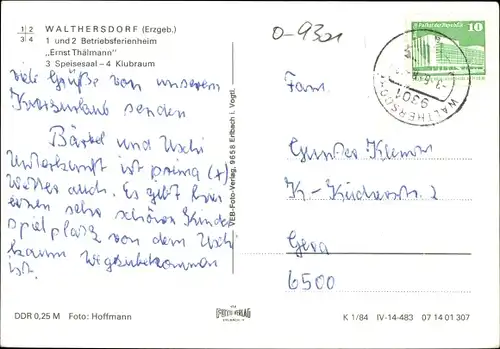 1|2 WALTHERSDORF (Erzgeb.)
3|4 1 und 2 Betriebsferienheim
„Ernst Thälmann"
3 Speisesaal – 4 Klubraum
viele Grüße von unserem
Kurzurlaub senden
Bärbel und Uschi
Unterkunft ist prima (+)
Wetter auch. Es gibt hier
einen sehr schönen Kinder
spielplatz von dem Usch
kaum wegzubekommen
ist.
DDR 0,25 M Foto: Hoffmann
VEB-Foto-Verlag, 9658 Erlbach i. Vogtl.
FOTO VERLAG
0-9301
10
9301
WALTHERSDORF
Fam.
Gunter Klemm
K-Küchlerstr. 2
Gera
6500
K 1/84 IV-14-483 07 14 01 307